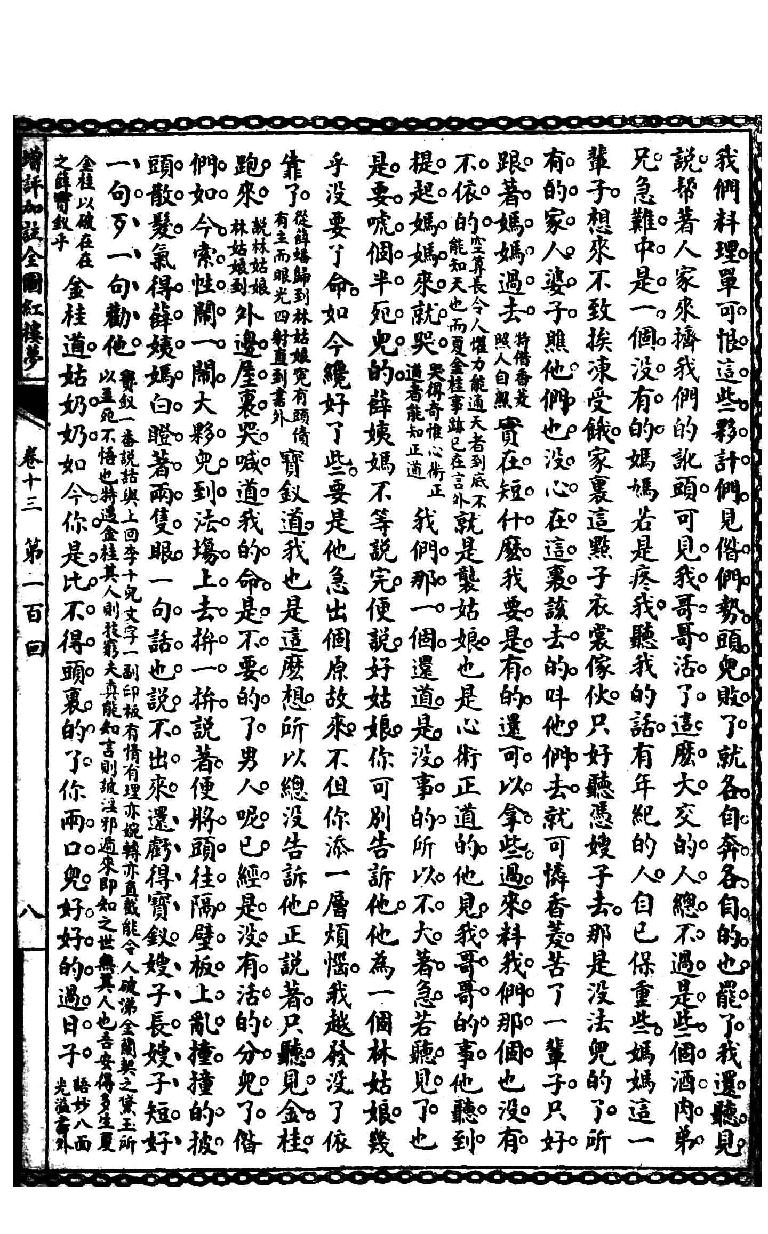 我們料理單可恨這些夥計們見偺們勢頭兒敗了就各自奔各自的也罷了我還聽見
說幫著人家來擠我們的訛頭可見我哥哥活了這麽大交的人總不過是些個酒肉弟
兄急難中是一個沒有的媽媽若是疼我聽我的話有年紀的人自己保重些媽媽這一
輩子想來不致挨凍受餓家裏這點子衣裳傢伙只好聽憑嫂子去那是没法兒的了所
有的家人婆子瞧他們也没心在這裏該去的叫他們去就可憐香菱苦了一輩子只好
跟著媽媽過去特借香菱照人自照實在短什麽我要是有的還可以拿些過來料我們那個也没有
不依的空尊長令人懼力能通天者到底不能知天也而夏金桂事跡已在言外就是襲姑娘也是心術正道的他見我哥哥的事他聽到
提起媽媽來就哭哭得奇惟心術正道者能知正道我們那一個還道是没事的所以不大著急若聽見了也
是要唬個半死兒的薛姨媽不等說完便說好姑娘你可別告訴他他為一個林姑娘幾
乎没要了命如今纔好了些要是他急出個原故來不但你添一層煩惱我越發没了依
靠了從薛蟠歸到林姑娘寃有頭債有主而眼光四射直到書外寶釵道我也是這麽想所以總没告訴他正說著只聽見金桂
跑來說林姑娘林姑娘到外邊屋裏哭喊道我的命是不要的了男人呢已經是没有活的分兒了偺
們如今索性鬧一鬧大夥兒到法塲上去拚一拚說著便將頭往隔壁板上亂撞撞的披
頭散髮氣得薛姨媽白瞪著兩隻眼一句話也說不出來還虧得寶釵嫂子長嫂子短好
一句歹一句勸他寶釵一番說話與上回李十兒文字一副印板有情有理亦婉轉亦直戴能令人破涕金蘭契之黛玉所以至死不悟也特遇金桂其人則技窮夫真能知言則詖淫邪遁來即知之世無其人也吾安得多生夏
金桂以破在在之薛寶釵乎金桂道姑奶奶如今你是比不得頭裏的了你兩口兒好好的過日子語妙八面光溢書外
增評加註全圖紅樓夢
卷十三 第一百回
八